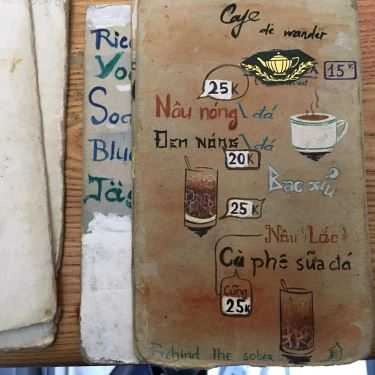 Cafe
de wander
15K
25K
Nâu nóng \ đá
Đen nóng \ đá
20K
Bạc xỉu
25K
Nâu (Lắc)
Cà phê sữa đá
Cứng
25K
Behind the sober
Blu